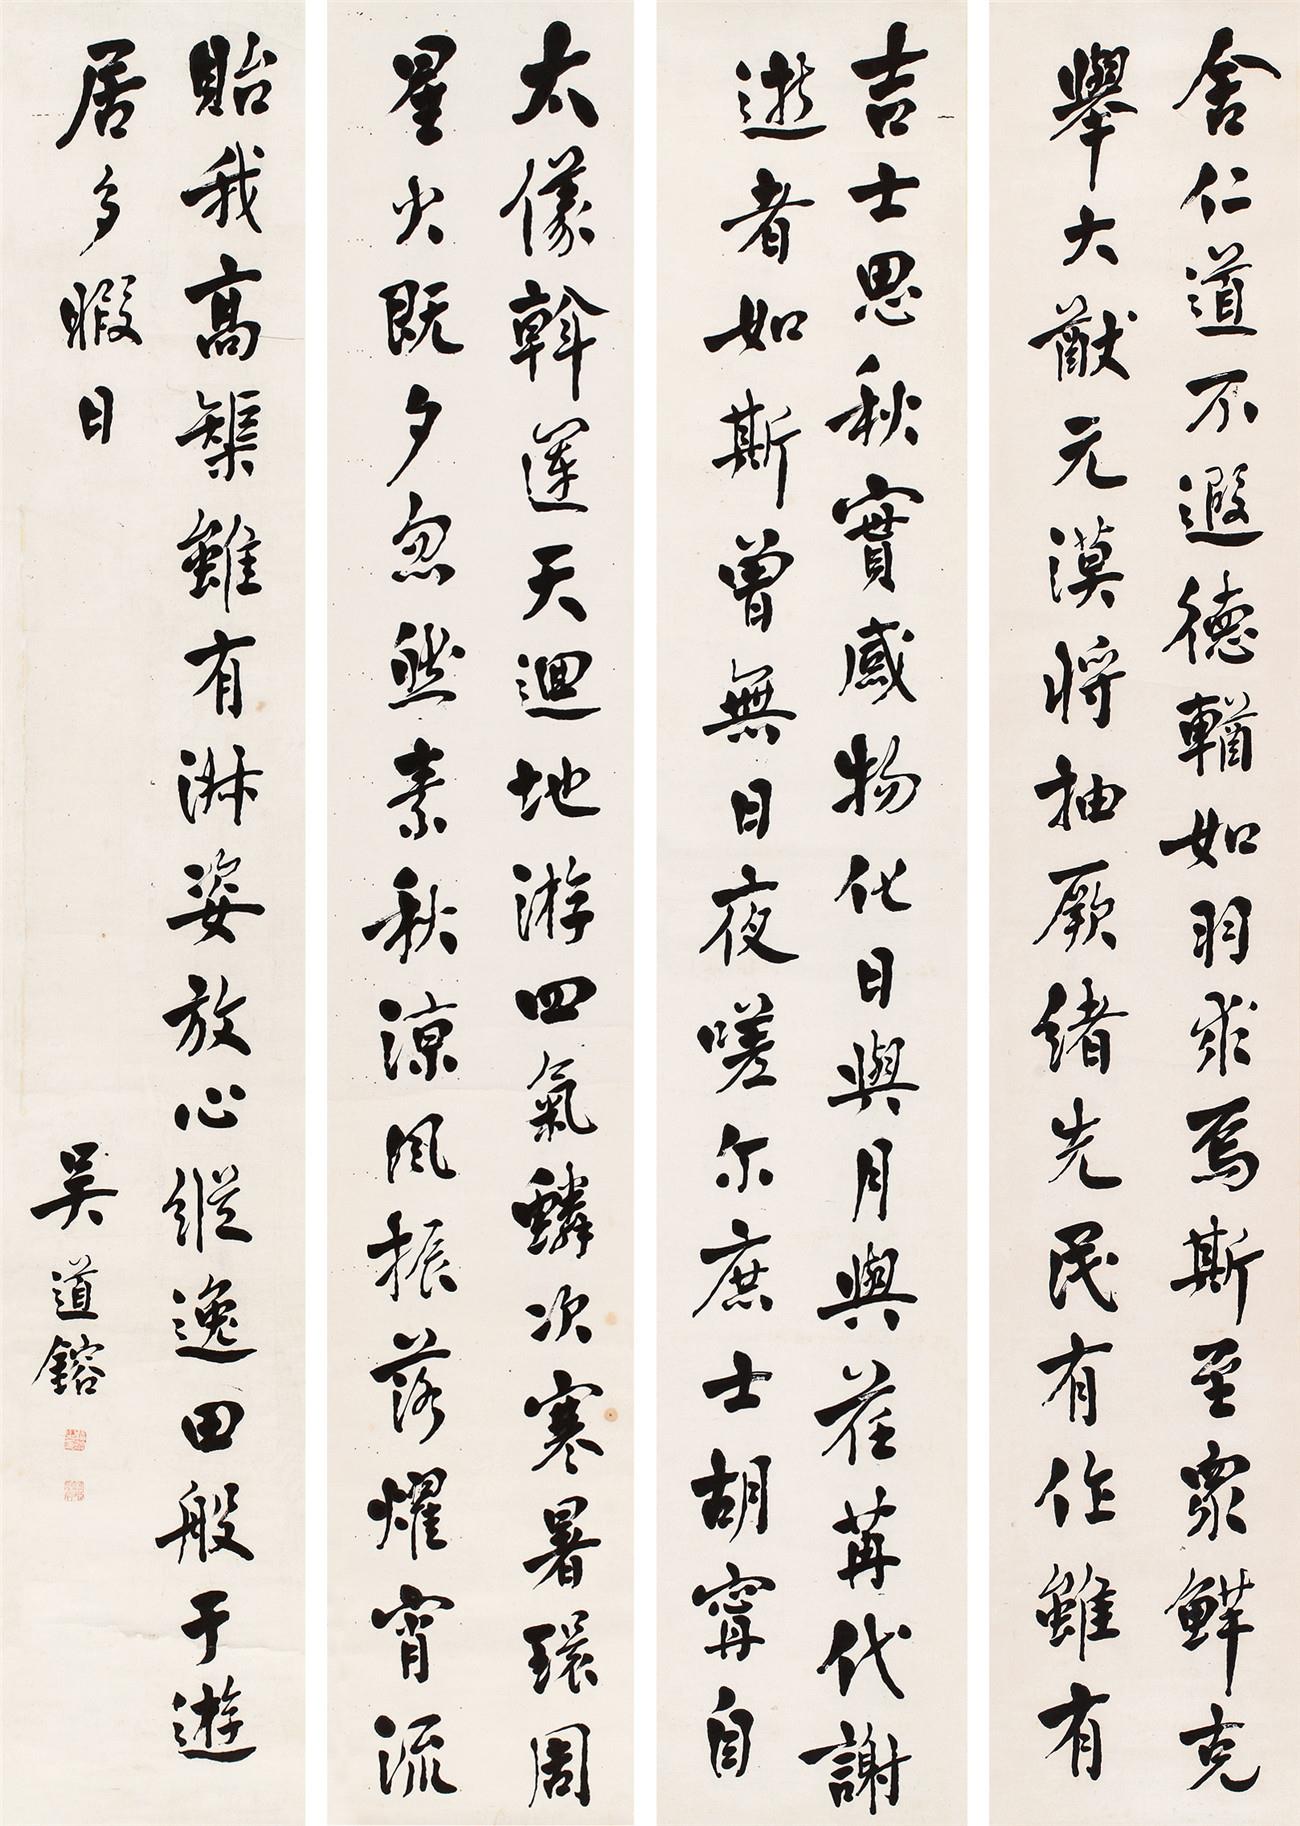 舍仁道不遐德輶如羽求焉斯至眾鮮克
舉大猷元漠將抽厥緒先民有作雖有
吉士思秋實感物化日與月與荏苒代謝
逝者如斯曾無日夜嗟尔庶士胡寧自
太儀斡運天迴地游四氣鱗次寒暑環周
星火既夕忽然素秋涼風振落燿宵流
貽我高榘雖有淑姿放心縱逸田般于遊
居多暇日
吳道鎔